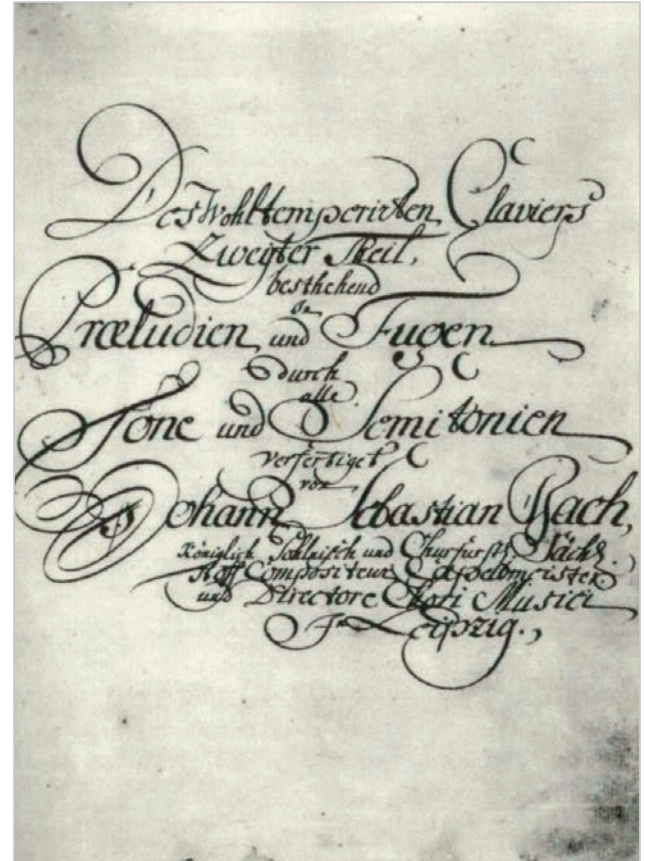 Des Wohltemperirten Claviers
Zweyter Theil,
besthehend
in
Præludien und Fugen
durch
alle
Tone und Semitonien
verfertiget
von
Johann Sebastian Bach,
Königlich Pohlnisch und Churfürstl. Sächs.
Hoff Compositeur Capellmeister
und Directore Chori Musici
In Leipzig.